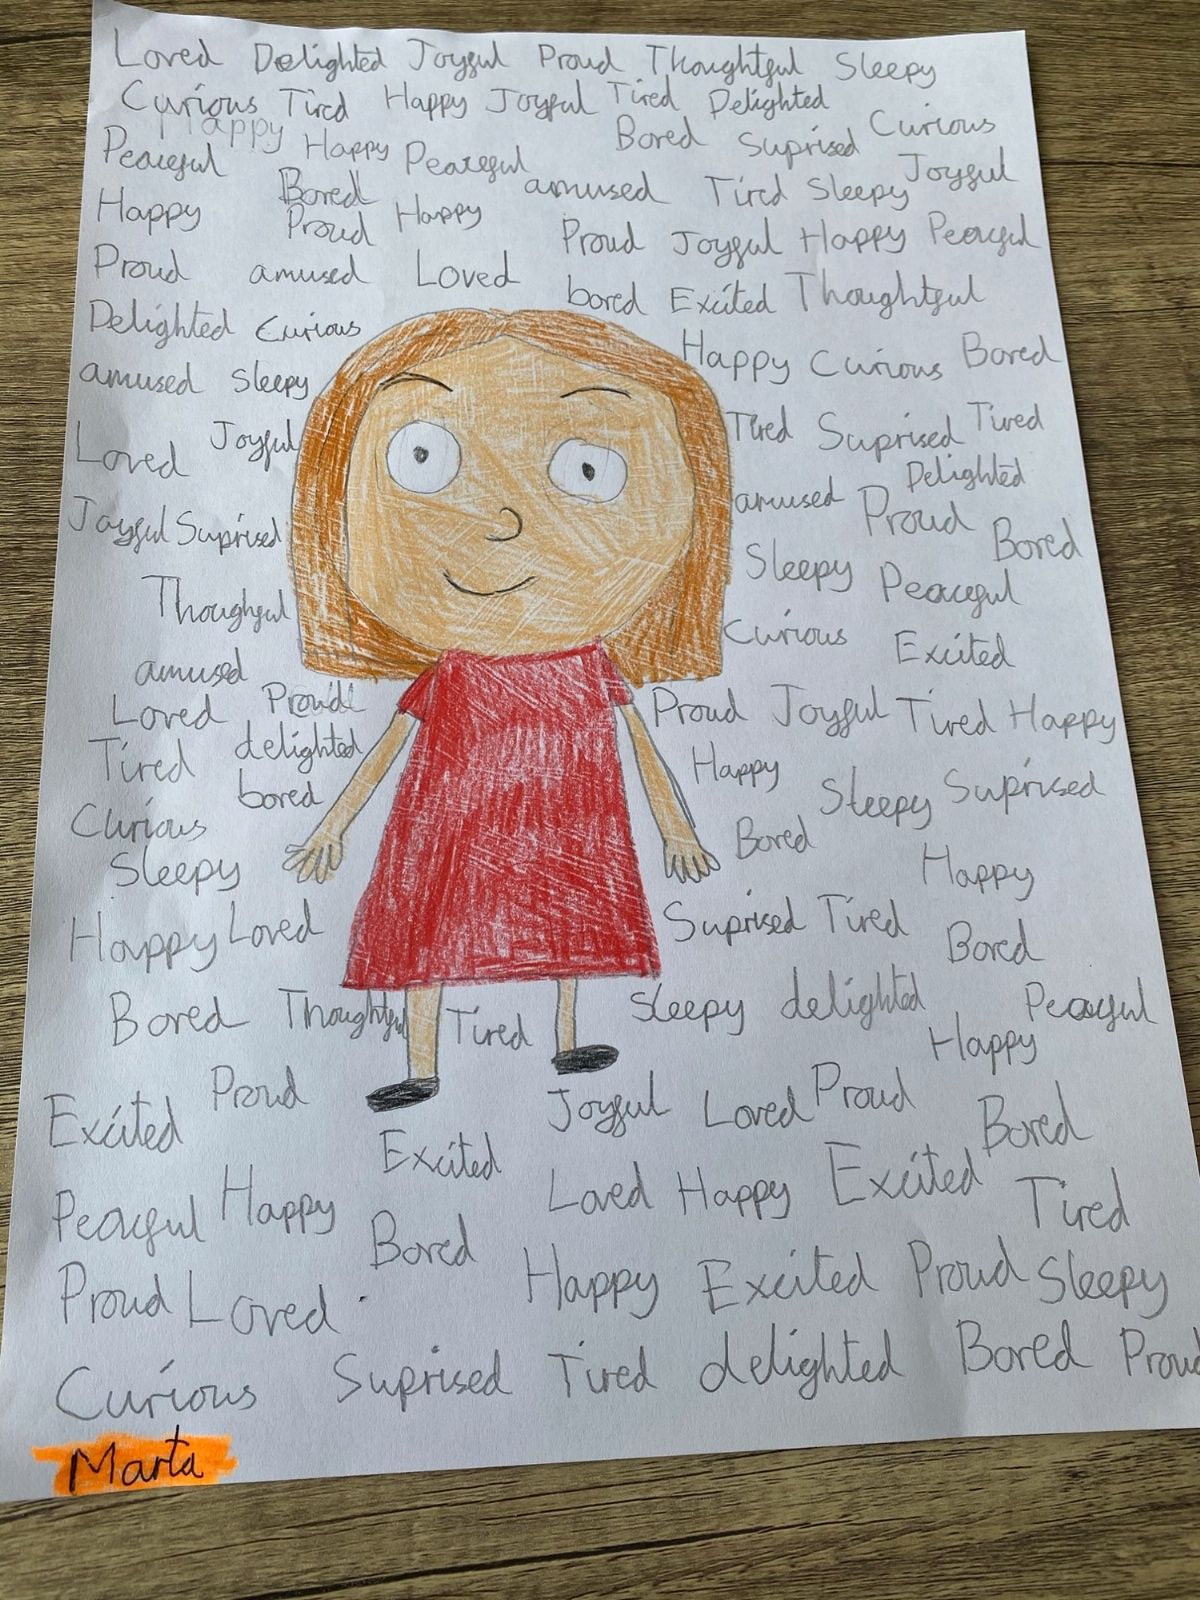 Loved Delighted Joyful Proud Thoughtful Sleepy
Curious Tired Happy Joyful Tired Delighted
Happy Bored Suprised Curious
Peaceful Happy Peaceful
Bored amused Tired Sleepy Joyful
Happy Proud Happy
Proud Joyful Happy Peaceful
Proud amused Loved
bored Excited Thoughtful
Delighted Curious
Happy Curious Bored
amused Sleepy
Tired Suprised Tired
Loved Joyful
Delighted
amused Proud
Joyful Suprised Bored
Sleepy Peaceful
Thoughful
Curious Excited
amused
Loved Proud Proud Joyful Tired Happy
Tired delighted Happy
bored Sleepy Suprised
Curious Bored
Sleepy Happy
Happy Loved Suprised Tired Bored
Bored Thoughtful Tired Sleepy delighted Peaceful
Happy
Excited Proud Joyful Loved Proud Bored
Excited
Peaceful Happy Loved Happy Excited Tired
Bored
Proud Loved Happy Excited Proud Sleepy
Curious Suprised Tired delighted Bored Proud
Marta